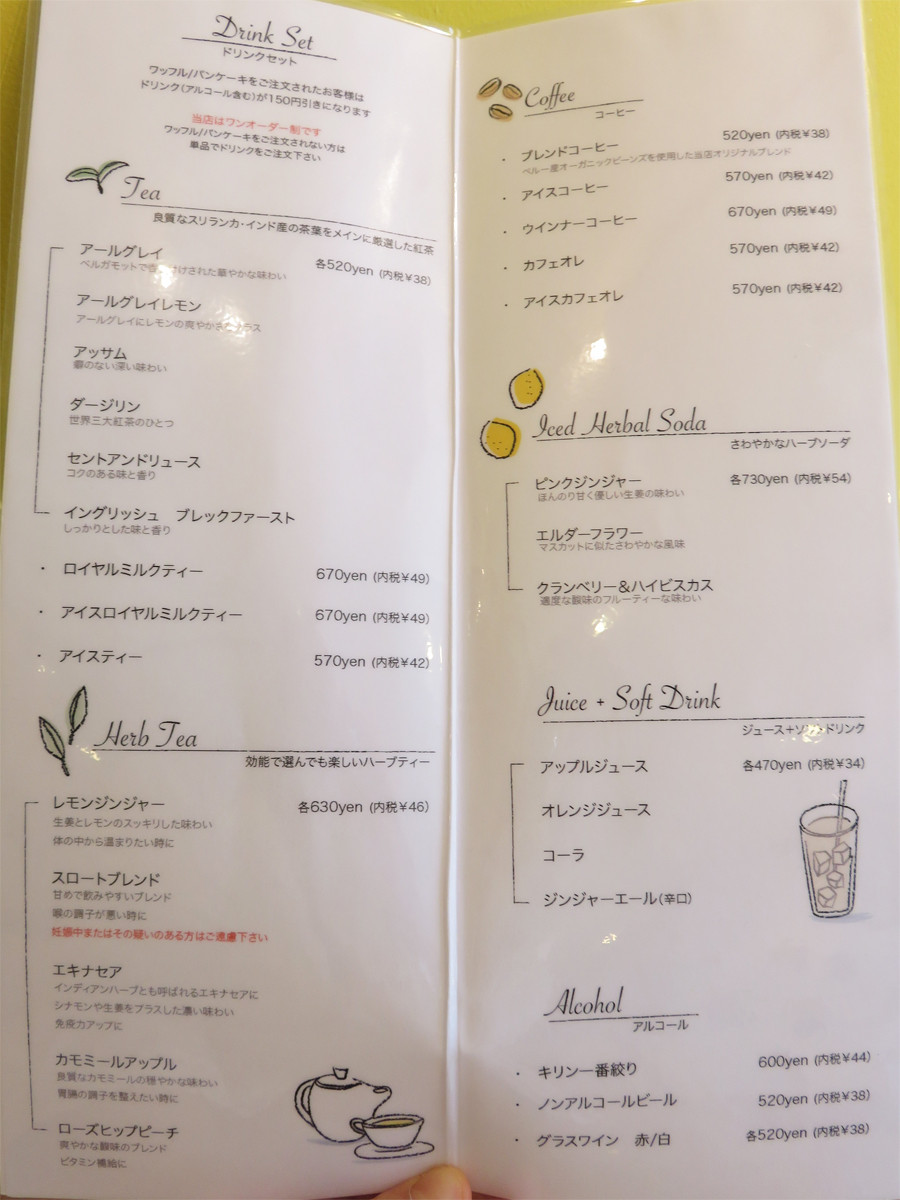 Drink Set
ドリンクセット
ワッフル/パンケーキをご注文されたお客様は
ドリンク(アルコール含む)が150円引きになります
当店はワンオーダー制です
ワッフル/パンケーキをご注文されない方は
単品でドリンクをご注文下さい
Tea
良質なスリランカ・インド産の茶葉をメインに厳選した紅茶
アールグレイ 各520yen (内税¥38)
ベルガモットで香り付けされた華やかな味わい
アールグレイレモン
アールグレイにレモンの爽やかさをプラス
アッサム
癖のない深い味わい
ダージリン
世界三大紅茶のひとつ
セントアンドリュース
コクのある味と香り
イングリッシュ ブレックファースト
しっかりとした味と香り
・ ロイヤルミルクティー 670yen (内税¥49)
・ アイスロイヤルミルクティー 670yen (内税¥49)
・ アイスティー 570yen (内税¥42)
Herb Tea
効能で選んでも楽しいハーブティー
レモンジンジャー 各630yen (内税¥46)
生姜とレモンのスッキリした味わい
体の中から温まりたい時に
スロートブレンド
甘めで飲みやすいブレンド
喉の調子が悪い時に
妊娠中またはその疑いのある方はご遠慮下さい
エキナセア
インディアンハーブとも呼ばれるエキナセアに
シナモンや生姜をプラスした濃い味わい
免疫力アップに
カモミールアップル
良質なカモミールの穏やかな味わい
胃腸の調子を整えたい時に
ローズヒップピーチ
爽やかな酸味のブレンド
ビタミン補給に
Coffee
コーヒー
・ ブレンドコーヒー 520yen (内税¥38)
ペルー産オーガニックビーンズを使用した当店オリジナルブレンド
・ アイスコーヒー 570yen (内税¥42)
・ ウインナーコーヒー 670yen (内税¥49)
・ カフェオレ 570yen (内税¥42)
・ アイスカフェオレ 570yen (内税¥42)
Iced Herbal Soda
さわやかなハーブソーダ
ピンクジンジャー 各730yen (内税¥54)
ほんのり甘く優しい生姜の味わい
エルダーフラワー
マスカットに似たさわやかな風味
クランベリー&ハイビスカス
適度な酸味のフルーティーな味わい
Juice + Soft Drink
ジュース+ソフトドリンク
アップルジュース 各470yen (内税¥34)
オレンジジュース
コーラ
ジンジャーエール(辛口)
Alcohol
アルコール
・ キリン一番絞り 600yen (内税¥44)
・ ノンアルコールビール 520yen (内税¥38)
・ グラスワイン 赤/白 各520yen (内税¥38)